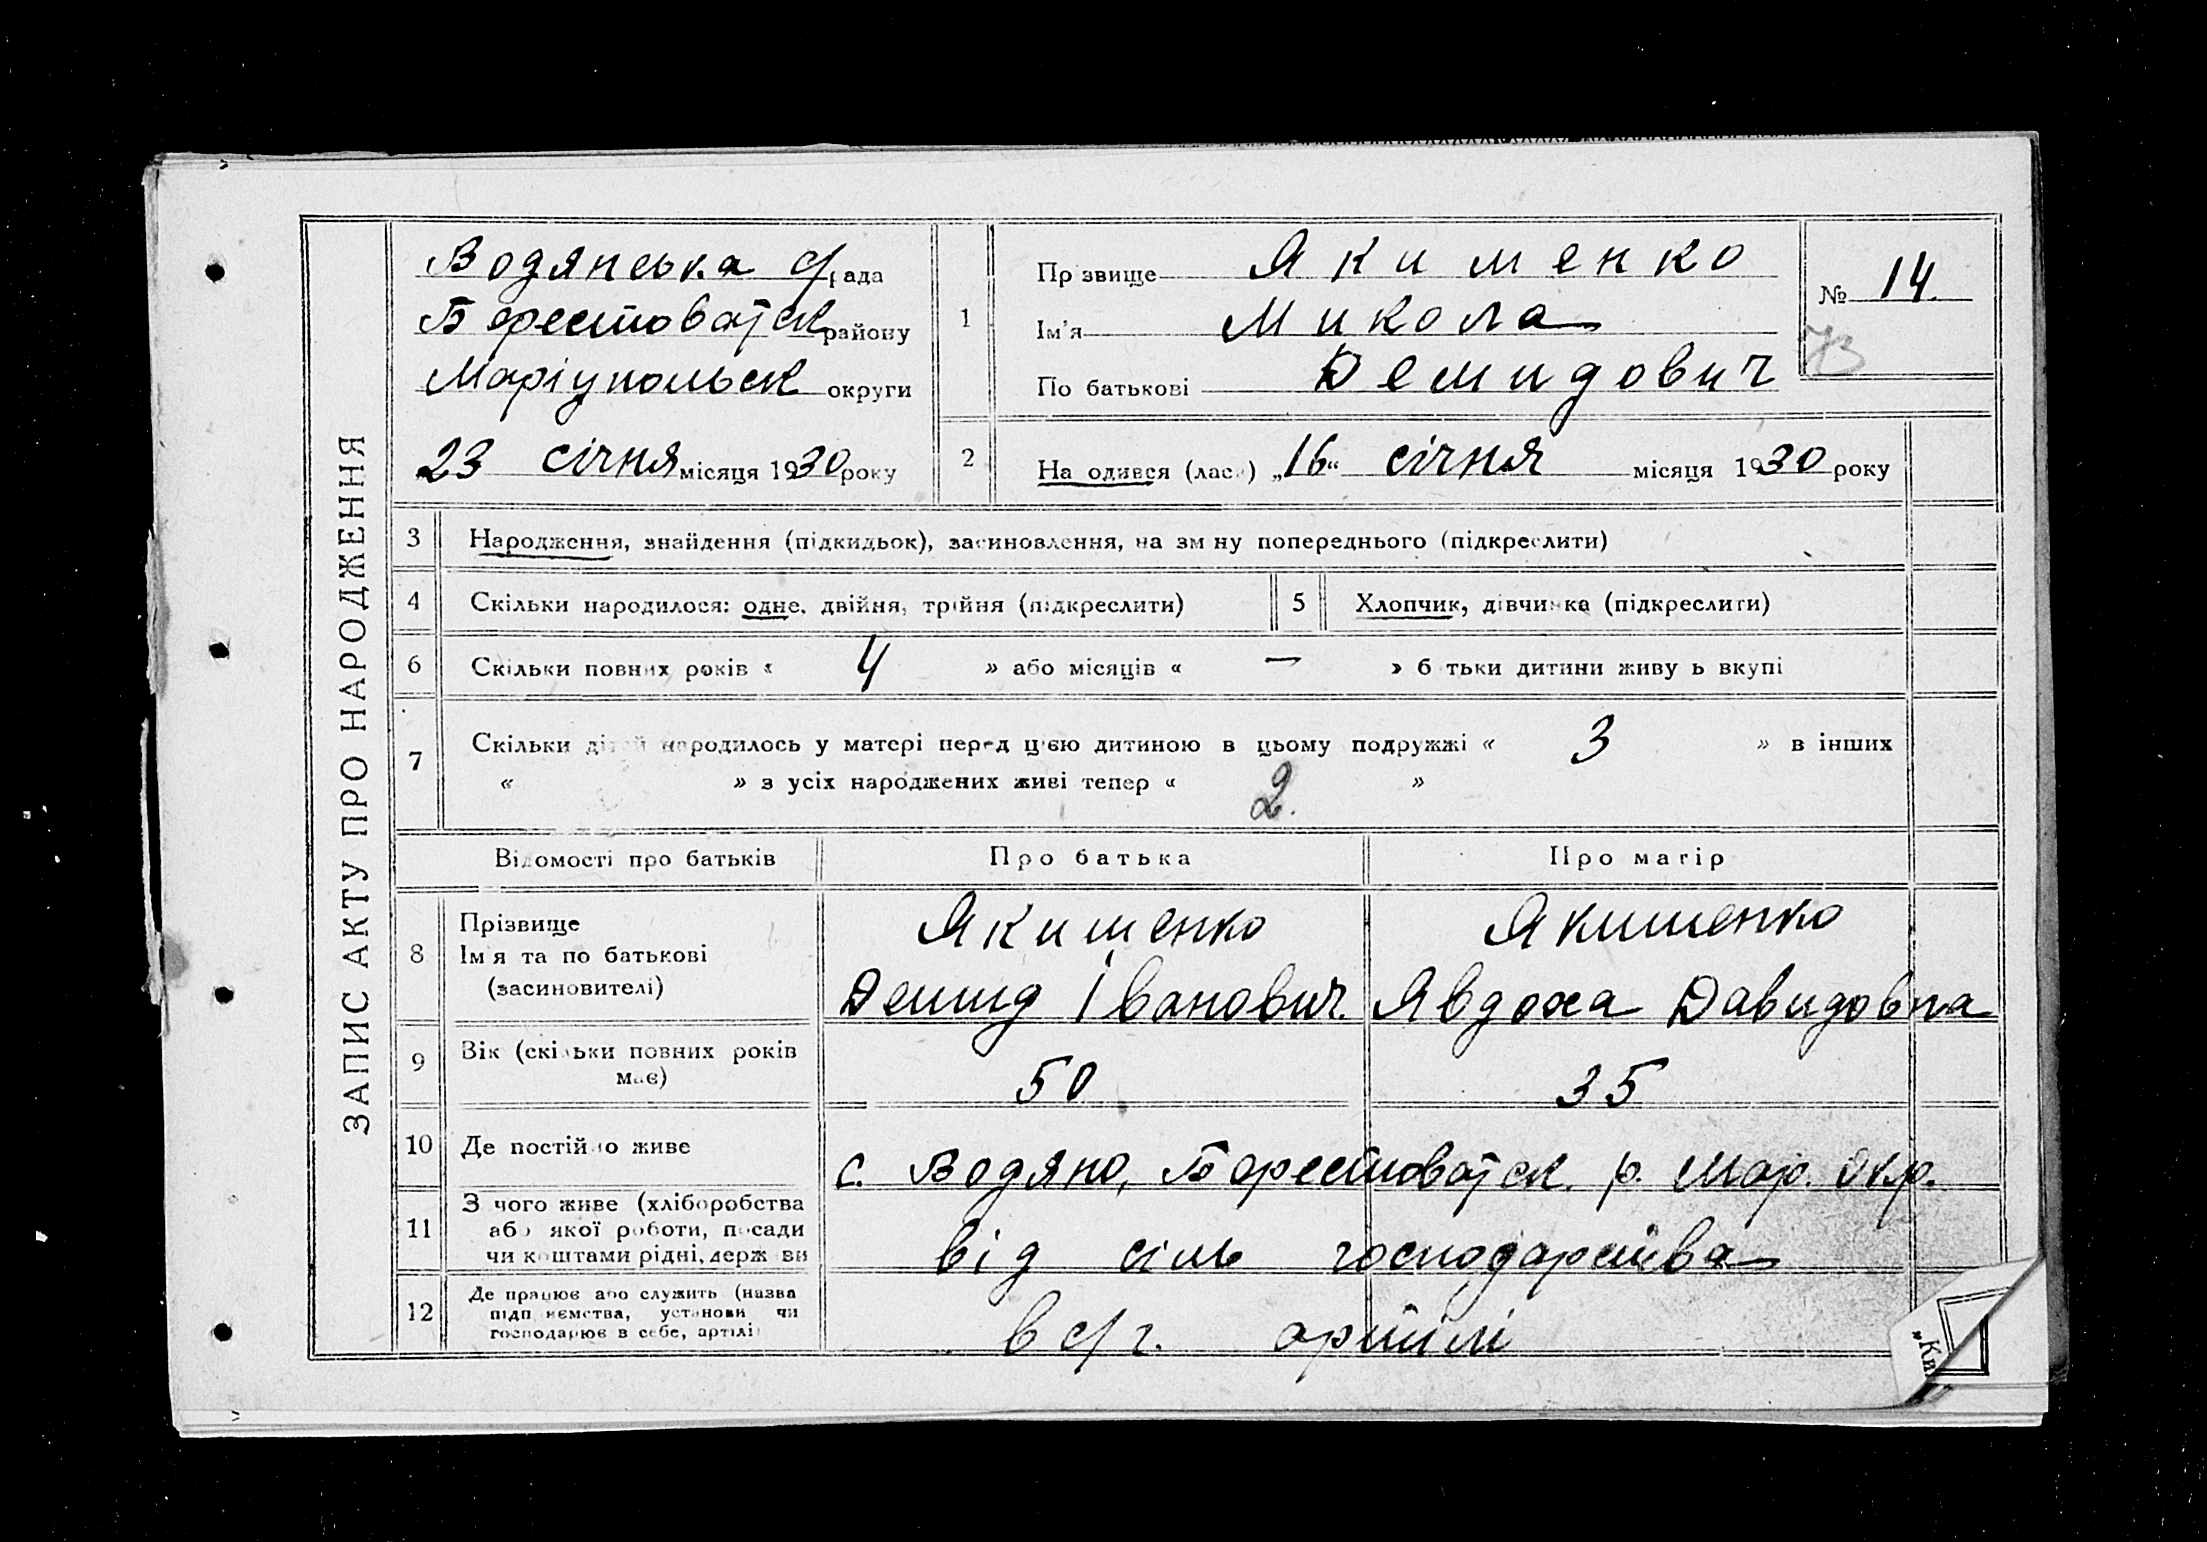 ЗАПИС АКТУ ПРО НАРОДЖЕННЯ
Водянська с/рада
Берестоватск району
Маріупольск округи
23 січня місяця 1930 року
1
Прізвище Якименко
Ім'я Микола
По батькові Демидович
№ 14.
2
Народився (лася) „16“ січня місяця 1930 року
3 Народження, знайдення (підкидьок), засиновлення, на зміну попереднього (підкреслити)
4 Скільки народилося: одне, двійня, трійня (підкреслити)
5 Хлопчик, дівчинка (підкреслити)
6 Скільки повних років « 4 » або місяців « — » батьки дитини живуть вкупі
7 Скільки дітей народилось у матері перед цією дитиною в цьому подружжі « 3 » в інших
« » з усіх народжених живі тепер « 2. »
Відомості про батьків Про батька Про матір
8 Прізвище
Ім'я та по батькові
(засиновителі)
Якименко
Демид Іванович.
Якименко
Явдоха Давидовна
9 Вік (скільки повних років
має)
50 35
10 Де постійно живе
с. Водяно, Берестоватск. р. Мар. окр.
11 З чого живе (хліборобства
або якої роботи, посади
чи коштами рідні, держави
від сіль господарства
12 Де працює або служить (назва
підприємства, установи чи
господарює в себе, артілі)
в с/г. артілі
„Ки